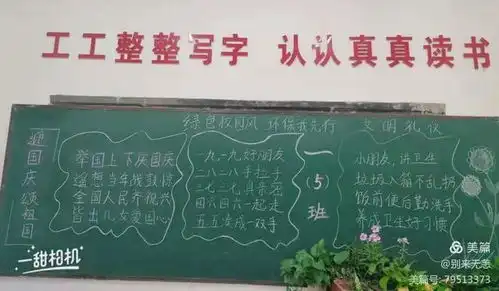 工工整整写字 认认真真读书
绿色校园风 环保我先行 文明礼仪
迎国庆颂祖国
举国上下庆国庆
缅想当年战鼓惊
全国人民齐祝兴
皆出儿女爱国心
一九一九好朋友
二八二八手拉手
三七三七真亲密
四六四六一起走
五五凑成一双手
一(5)班
小朋友,讲卫生
垃圾入箱不乱扔
饭前便后勤洗手
养成卫生好习惯
一甜相机
美篇
@别来无恙
美篇号: 79513373